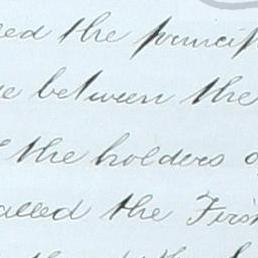 the princip
between the
the holders
called the First
the